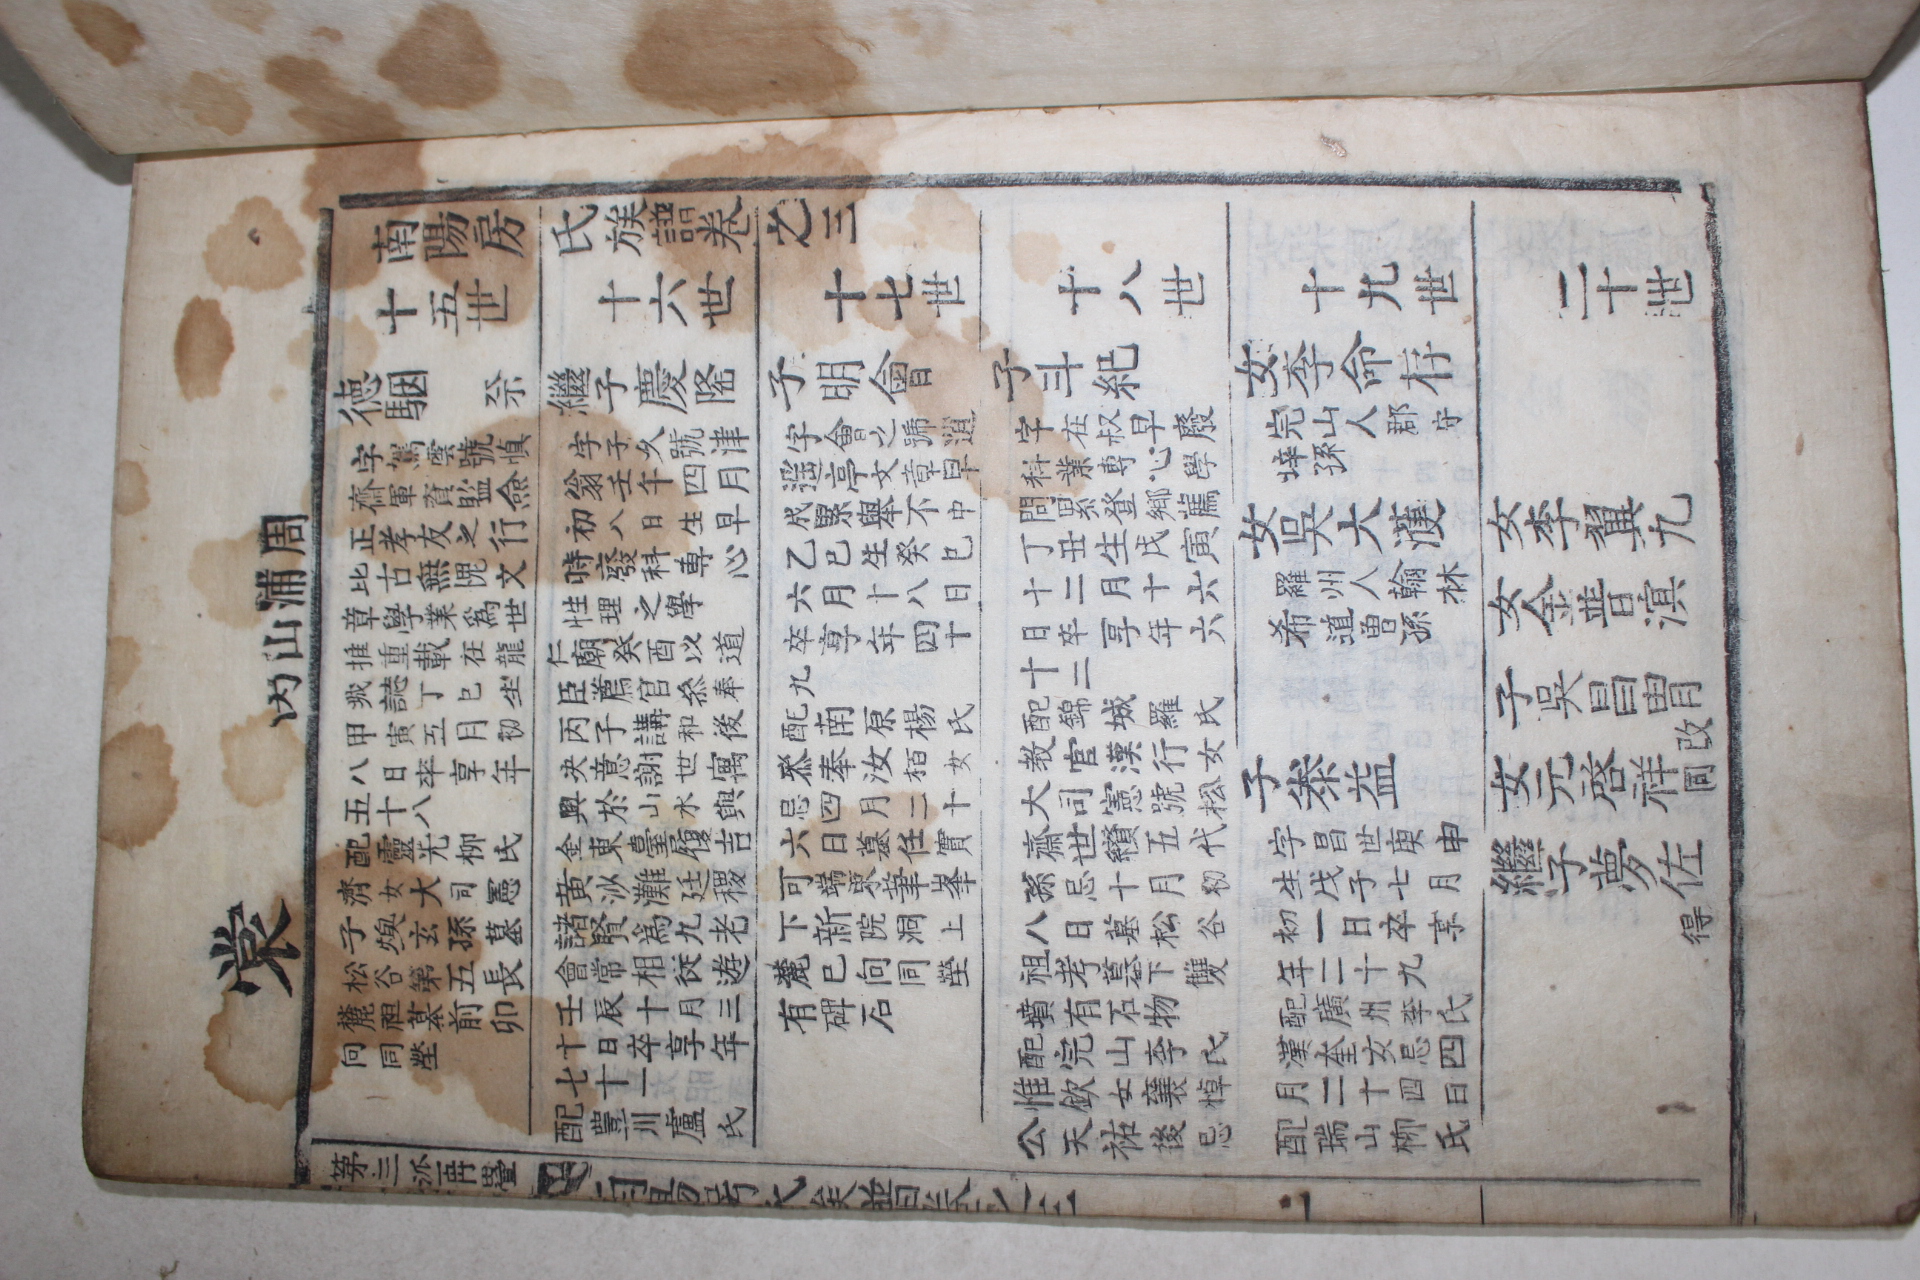 裳
周浦山內
南陽房氏族譜卷之三
十五世
德駰
祭
字駕雲號慎
齋軍資監僉
正孝友之行
比古無愧文
章學業爲世
推重載在龍
城誌丁巳生
甲寅五月初
八日卒享年
五十八
配靈光柳氏
濟女大司憲
子煥玄孫墓
松谷第五長
麓祖墓前卯
向同塋
十六世
繼子慶隆
字子久號津
翁壬午四月
初八日生早
時廢科專心
性理之學
仁廟癸酉以道
臣薦官叅奉
丙子講和後
决意謝世寓
興於山水與
金東臺履吉
黄沙灘廷稷
諸賢爲九老
會常相從遊
壬辰十月三
十日卒享年
七十一
配豊川盧氏
十七世
子明會
字會之號逍
遥亭文章早
成累舉不中
乙巳生癸巳
六月十八日
卒享年四十
九
配南原楊氏
叅奉汝栢女
忌四月二十
六日墓任實
可端東筆峯
下新院洞上
麓巳向同塋
有碑石
十八世
子斗紀
字在叔早廢
科業專心學
問累登鄉薦
丁丑生戊寅
十二月十六
日卒享年六
十二
配錦城羅氏
教官漢行女
大司憲號松
齋世纘五代
孫忌十月初
八日墓松谷
祖考墓下雙
墳有石物
配完山李氏
惟欽女襄悼
公天祐後忌
十九世
女李命存
完山人郡守
㙯孫
女吳大漢
羅州人翰林
希道曾孫
子泰益
字昌世庚申
生戊子七月
初一日卒享
年二十九
配廣州李氏
漢奎女忌四
月二十四日
配瑞山柳氏
二十世
女李翼九
女金普演
子吳昌胄
改
女元啓祥
同
繼子夢佐
得
第三派再疊
南陽房氏族譜卷之三